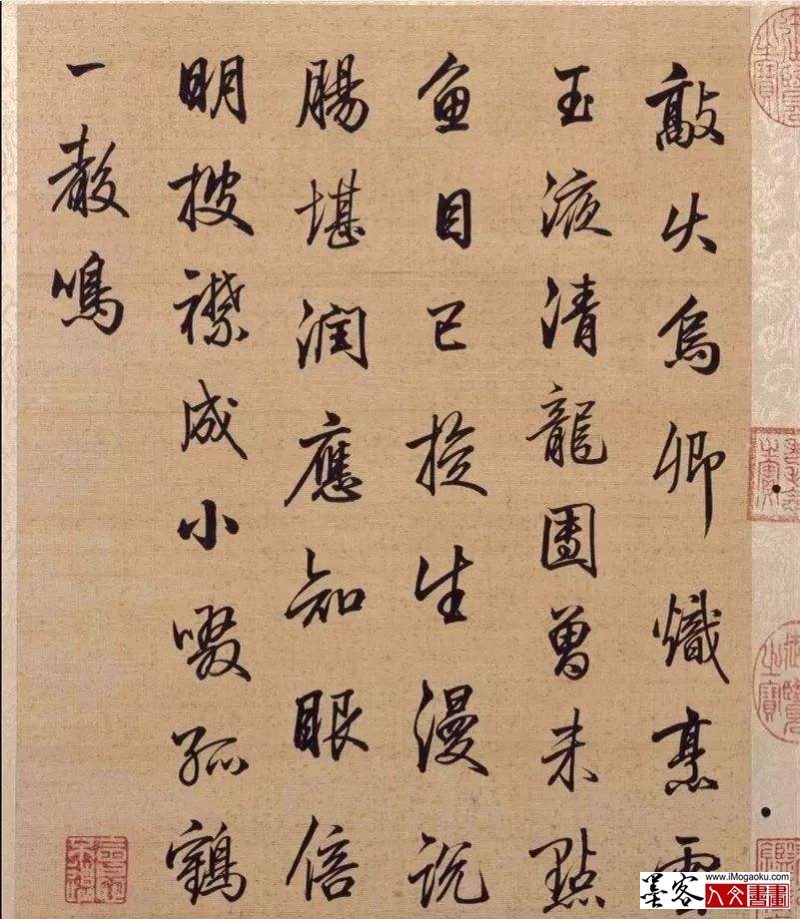 敲火烏卿熾烹
玉液清龍團曾未點
魚目已旋生漫說
腸堪潤應知眼倍
明披襟成小啜孤鶴
一聲鳴
www.iMogaoku.com
墨客人文書畫